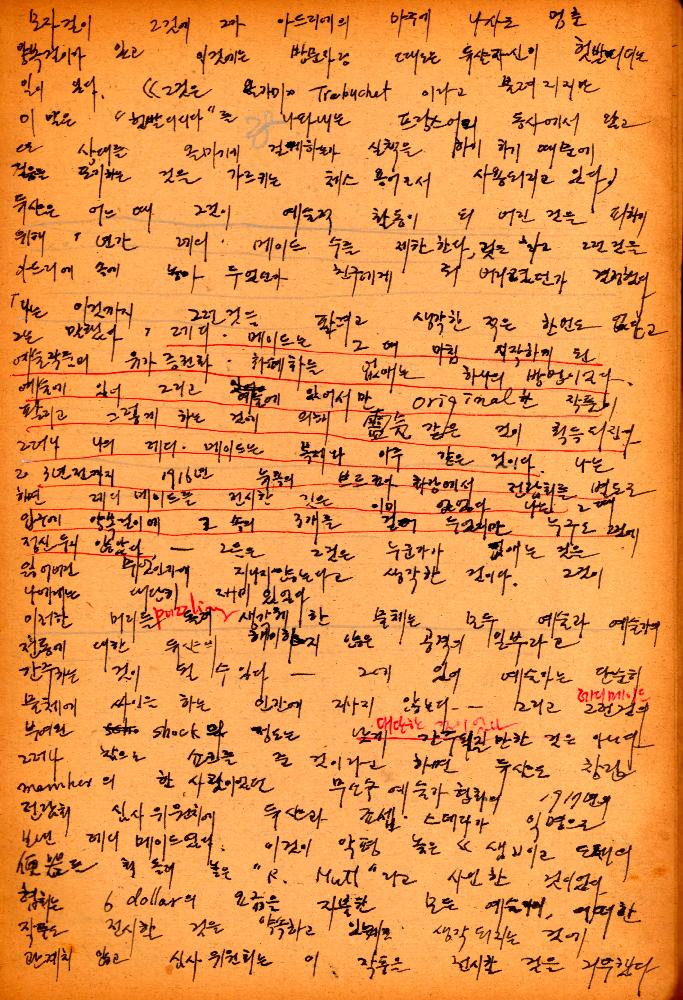 모자걸이 그것에 그가 아뜨리에의 마루에 나사로 멈춘
양복걸이가 있고 이것에는 방문자랑 때로는 뒤샹자신이 헛발디디는
일이 있다. 《그것은 올가미» Trebuchet 이라고 불려지지만
이 말은 "헛발디디다"를 나타내는 프랑스어의 동사에서 왔고
또 상대를 하기 때문에
것을 가르키는 체스 용어로서 사용되리고 있다》
뒤샹은 어느 때 그것이 예술적 활동이 되 버린 것을 피하기
위해 년간 레디·메이드 수를 제한한다, 그런것을
아뜨리에 속에 놓아 두었던가 친구에게 줘 버리곤했던가 결정했다
「나는 이것까지 그런것을 팔려고 생각한 적은 한번도 없다」고
그는 말했다. 「레디·메이드는 그 때 마침 시작하게 된
예술작품의 유가증권화·화폐화를 없애는 하나의 방법이었다.
예술에 있어 그리고 예술에 있어서만 original한 작품이
팔리고 그렇게 하는 것에 의해 靈氣 같은 것이 획득되진다
그러나 나의 레디·메이드는 복제라 아주 같은 것이다. 나는
3년전까지 1916년 뉴욕의 브르조아 화랑에서 전람회를 별도로
하면 레디메이드를 전시한 것은 이미 없었다 나는 그때
입구에 악보걸이에 그 속의 3개를 걸어 두었지만 누구도 그것에
정신두지 않았다. — 그들은 그것은 누군가가 없애는 것을
잃어버린 지나지않는다고 생각한 것이다. 그것이
나에게는 대단히 재미 있었다
이러한 머리를 puzzling 생각케 한 물체는 모두 예술과 예술가의
전통에 대한 뒤샹의 않은 공격의 일부라고
간주하는 것이 될 수 있다 — 그게 있어 예술가는 단순히
물체에 싸인을 하는 인간에 지나지 않는다-- 그리고 레디메이드 그런것의
부여된 shock의 정도는 낮게 대단한 것이 없다 간주되질 만한 것은 아니다
그러나 참으로 쇼크를 준 것이라고 하면 뒤샹도 창립
member의 한 사람이었던 무소속 예술가 협회의 1917년의
전람회 심사위원회에 뒤샹과 죠셉·스테라가 익명으로
보낸 레디메이드였다. 이것이 악평 높은 《샘》이고 도제의
便器로 높은 "R. Mutt"라고 사인한 것이었다
협회는 6 dollar의 요금을 지불한 모든 예술가의, 어떠한
작품도 전시한 것은 약속하고 있는데도 생각되리는 것에
관계치 않고 심사위원회는 이 작품을 전시할 것을 거부했다